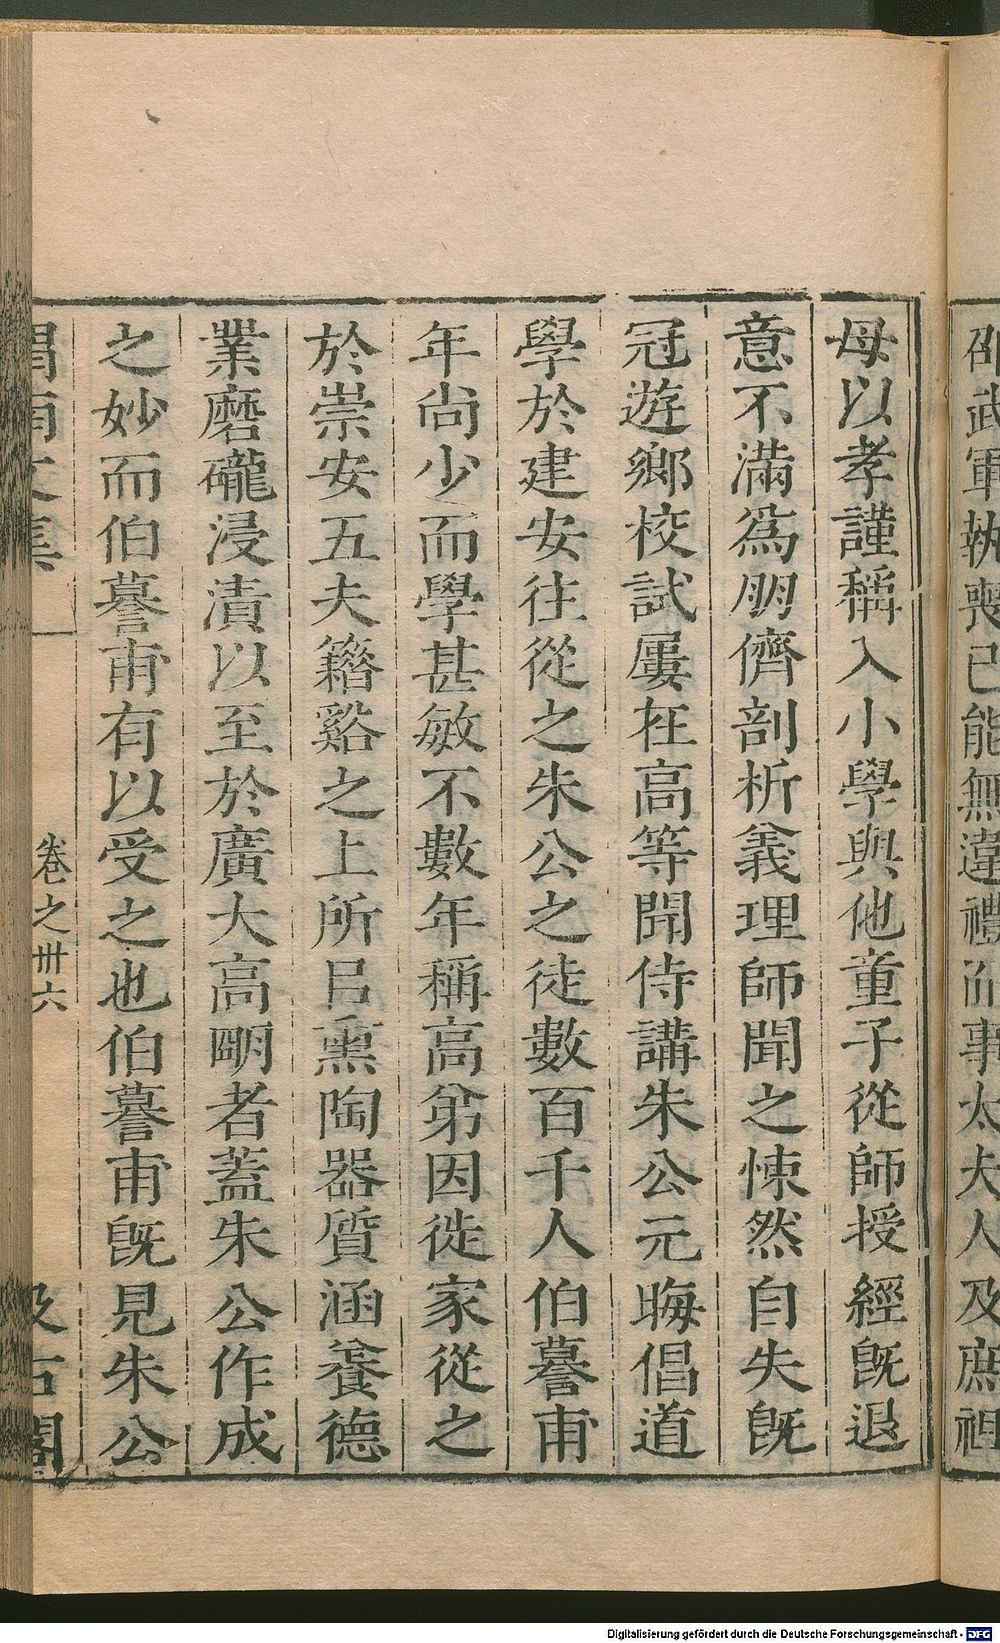 邵武軍執喪已能無違禮而事太夫人及庶祖
母以孝謹稱入小學與他童子從師授經旣退
意不滿爲朋儕剖析義理師聞之悚然自失旣
冠遊鄉校試屢在高等聞侍講朱公元晦倡道
學於建安往從之朱公之徒數百千人伯謩甫
年尙少而學甚敏不數年稱高弟因徙家從之
於崇安五夫籍谿之上所㠯熏陶器質涵養德
業磨礲浸漬以至於廣大高朙者蓋朱公作成
之妙而伯謩甫有以受之也伯謩甫旣見朱公
渭南文集
卷之卅六
汲古閣
Digitalisierung gefördert durch die Deutsche Forschungsgemeinschaft - DFG